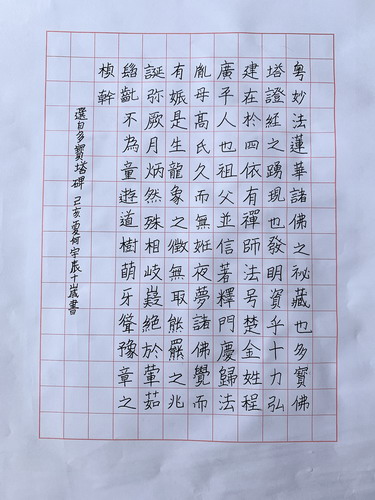 粤妙法蓮華諸佛之祕藏也多寶佛
塔證經之踴現也發明資乎十力弘
建在於四依有禪師法号楚金姓程
廣平人也祖父並信著釋門慶歸法
胤母高氏久而無妊夜夢諸佛覺而
有娠是生龍象之徵無取熊羆之兆
誕弥厥月炳然殊相岐嶷絕於葷茹
髫齓不為童遊道樹萌牙聳豫章之
楨幹
選自多寶塔碑 己亥夏何宇辰十歲書